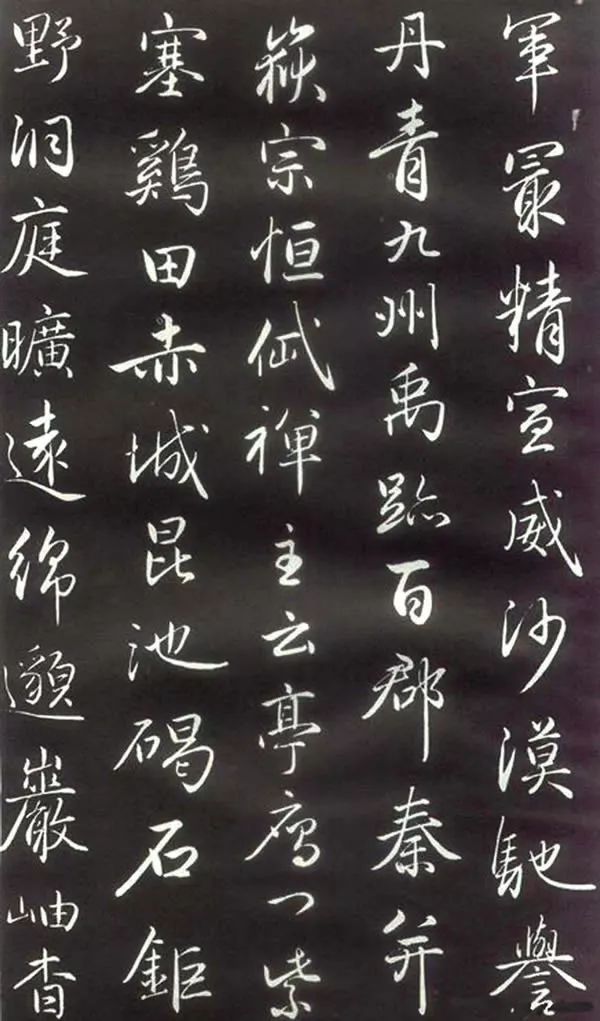 軍最精宣威沙漠馳譽
丹青九州禹跡百郡秦并
嶽宗恒岱禪主云亭雁門紫
塞鷄田赤城昆池碣石鉅
野洞庭曠遠綿邈巖岫杳